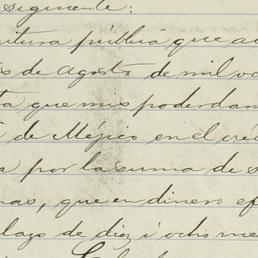 seguiente:
itura pública que a
s de agosto de mil vo
ta que mis poderdan
i de Méjico en el cré
a por la suma de s
nas, que en dinero ef
lazo de diez i ocho me